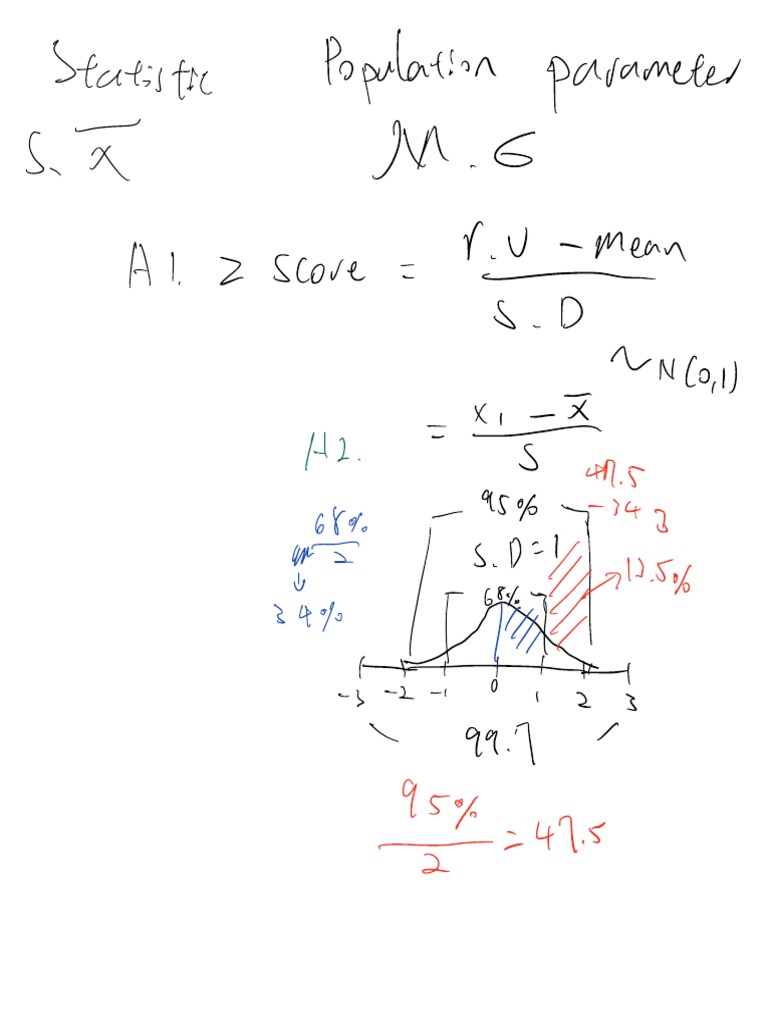 Statistic Population parameter
S. x̅ M. σ
A1. z score = r.v - mean / S.D
~ N(0,1)
A2. = x₁ - x̅ / S
47.5
95% - 34
68% / 2 S.D = 1 13.5%
↓
34% 68%
-3 -2 -1 0 1 2 3
99.7
95% / 2 = 47.5